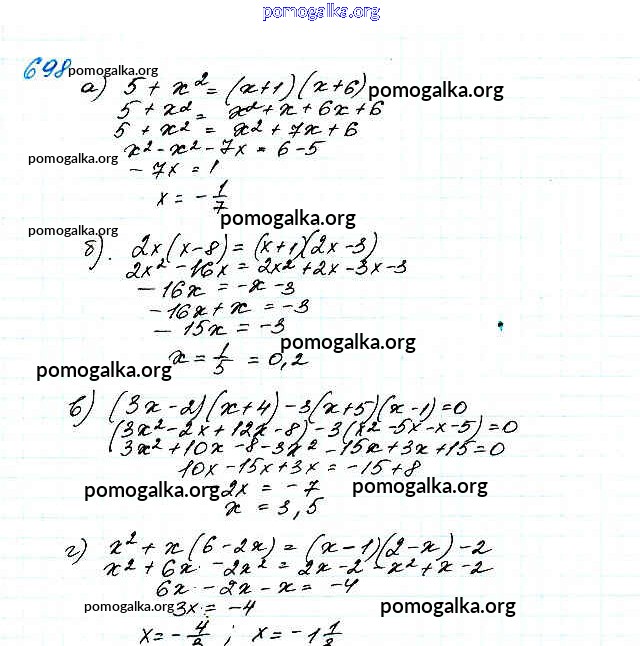 pomogalka.org
698 pomogalka.org
а) 5 + x² = (x+1)(x+6) pomogalka.org
5 + x² = x² + x + 6x + 6
5 + x² = x² + 7x + 6
pomogalka.org x² - x² - 7x = 6 - 5
- 7x = 1
x = - 1/7
pomogalka.org
pomogalka.org
б). 2x(x-8) = (x+1)(2x-3)
2x² - 16x = 2x² + 2x - 3x - 3
- 16x = -x - 3
- 16x + x = -3
- 15x = -3
pomogalka.org
x = 1/5 = 0,2
pomogalka.org
в) (3x-2)(x+4) - 3(x+5)(x-1) = 0
(3x² - 2x + 12x - 8) - 3(x² - 5x - x - 5) = 0
3x² + 10x - 8 - 3x² - 15x + 3x + 15 = 0
10x - 15x + 3x = -15 + 8
pomogalka.org -2x = -7 pomogalka.org
x = 3,5
г) x² + x(6-2x) = (x-1)(2-x) - 2
x² + 6x - 2x² = 2x - 2 - x² + x - 2
6x - 2x - x = -4
pomogalka.org 3x = -4 pomogalka.org
x = - 4/3 ; x = -1 1/3